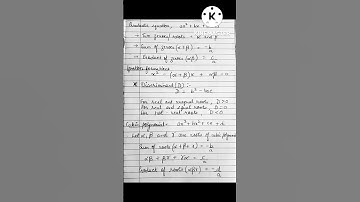 K
Quadratic equation, ax² + bx + c = 0
→ Two zeroes/roots = α and β
→ Sum of zeroes (α+β) = -b/a
→ Product of zeroes (αβ) = c/a
x² - (α+β)x + αβ = 0
* Discriminant (D) :-
D = b² - 4ac
For real and unequal roots, D>0
For real and equal roots, D=0
For not real roots, D<0
Cubic Polynomial - ax³ + bx² + cx + d
Let α, β and γ are roots of cubic polynomial
Sum of roots (α+β+γ) = -b/a
αβ + βγ + γα = c/a
Product of roots (αβγ) = -d/a